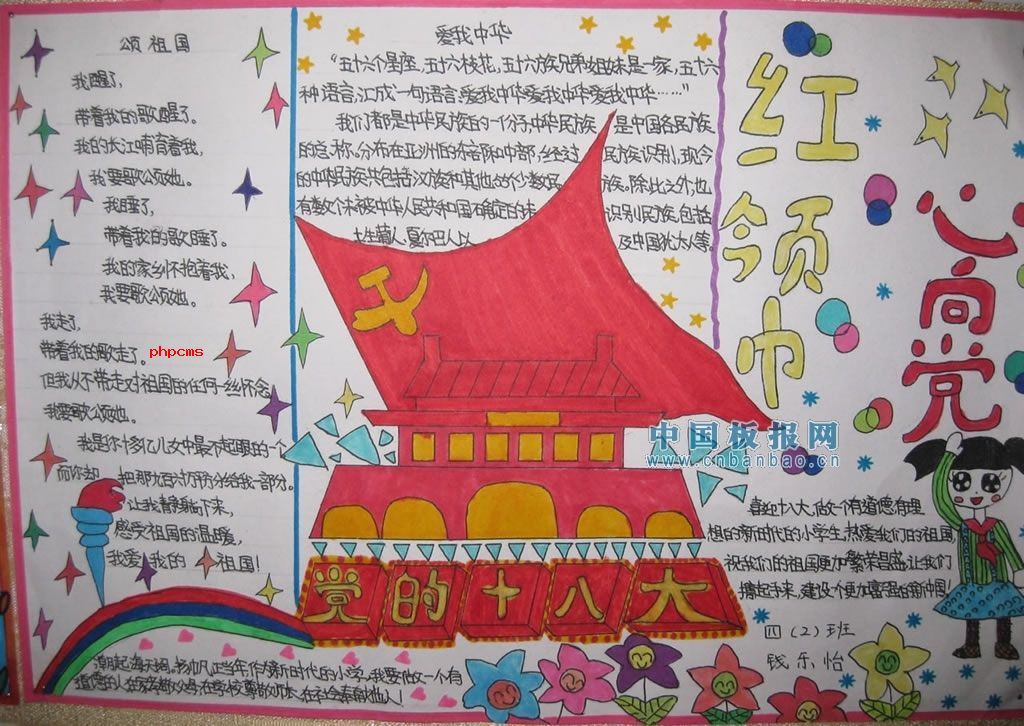 颂祖国
我醒了,
带着我的歌醒了。
我的长江哺育着我,
我要歌颂她。
我睡了,
带着我的歌睡了。
我的家乡怀抱着我,
我要歌颂她。
我走了,
带着我的歌走了。
但我从不带走对祖国的任何一丝怀念
我要歌颂她。
我是你十多亿儿女中最不起眼的一个
而你却 把那九百六十万平分给我一部分。
让我静静躺下来,
感受祖国的温暖,
我爱 我的 祖国!
phpcms
爱我中华
“五十六个星座,五十六枝花,五十六族兄弟姐妹是一家,五十六
种语言,汇成一句话语:爱我中华爱我中华爱我中华……”
我们都是中华民族的一份子,中华民族 是中国各民族
的总称。分布在亚洲的东部和中部,经过 民族识别,现今
的中华民族共包括汉族和其他55个少数民 族。除此之外,也
有数个未被中华人民共和国确定的未 识别民族,包括
土生葡人、夏尔巴人以 及中国犹太人等。
红领巾
心向党
中国板报网
www.cnbanbao.cn
党的十八大
喜迎十八大,做一个有道德有理
想的新时代的小学生,热爱我们的祖国,
祝我们的祖国更加繁荣昌盛,让我们
撸起手来,建设一个更加富强的新中国!
四(2)班
钱乐怡
潮起海天阔,扬帆正当年,作新时代的小学,我要做一个有
道德的人在家孝敬父母在学校尊敬师长,在社会奉献他人!